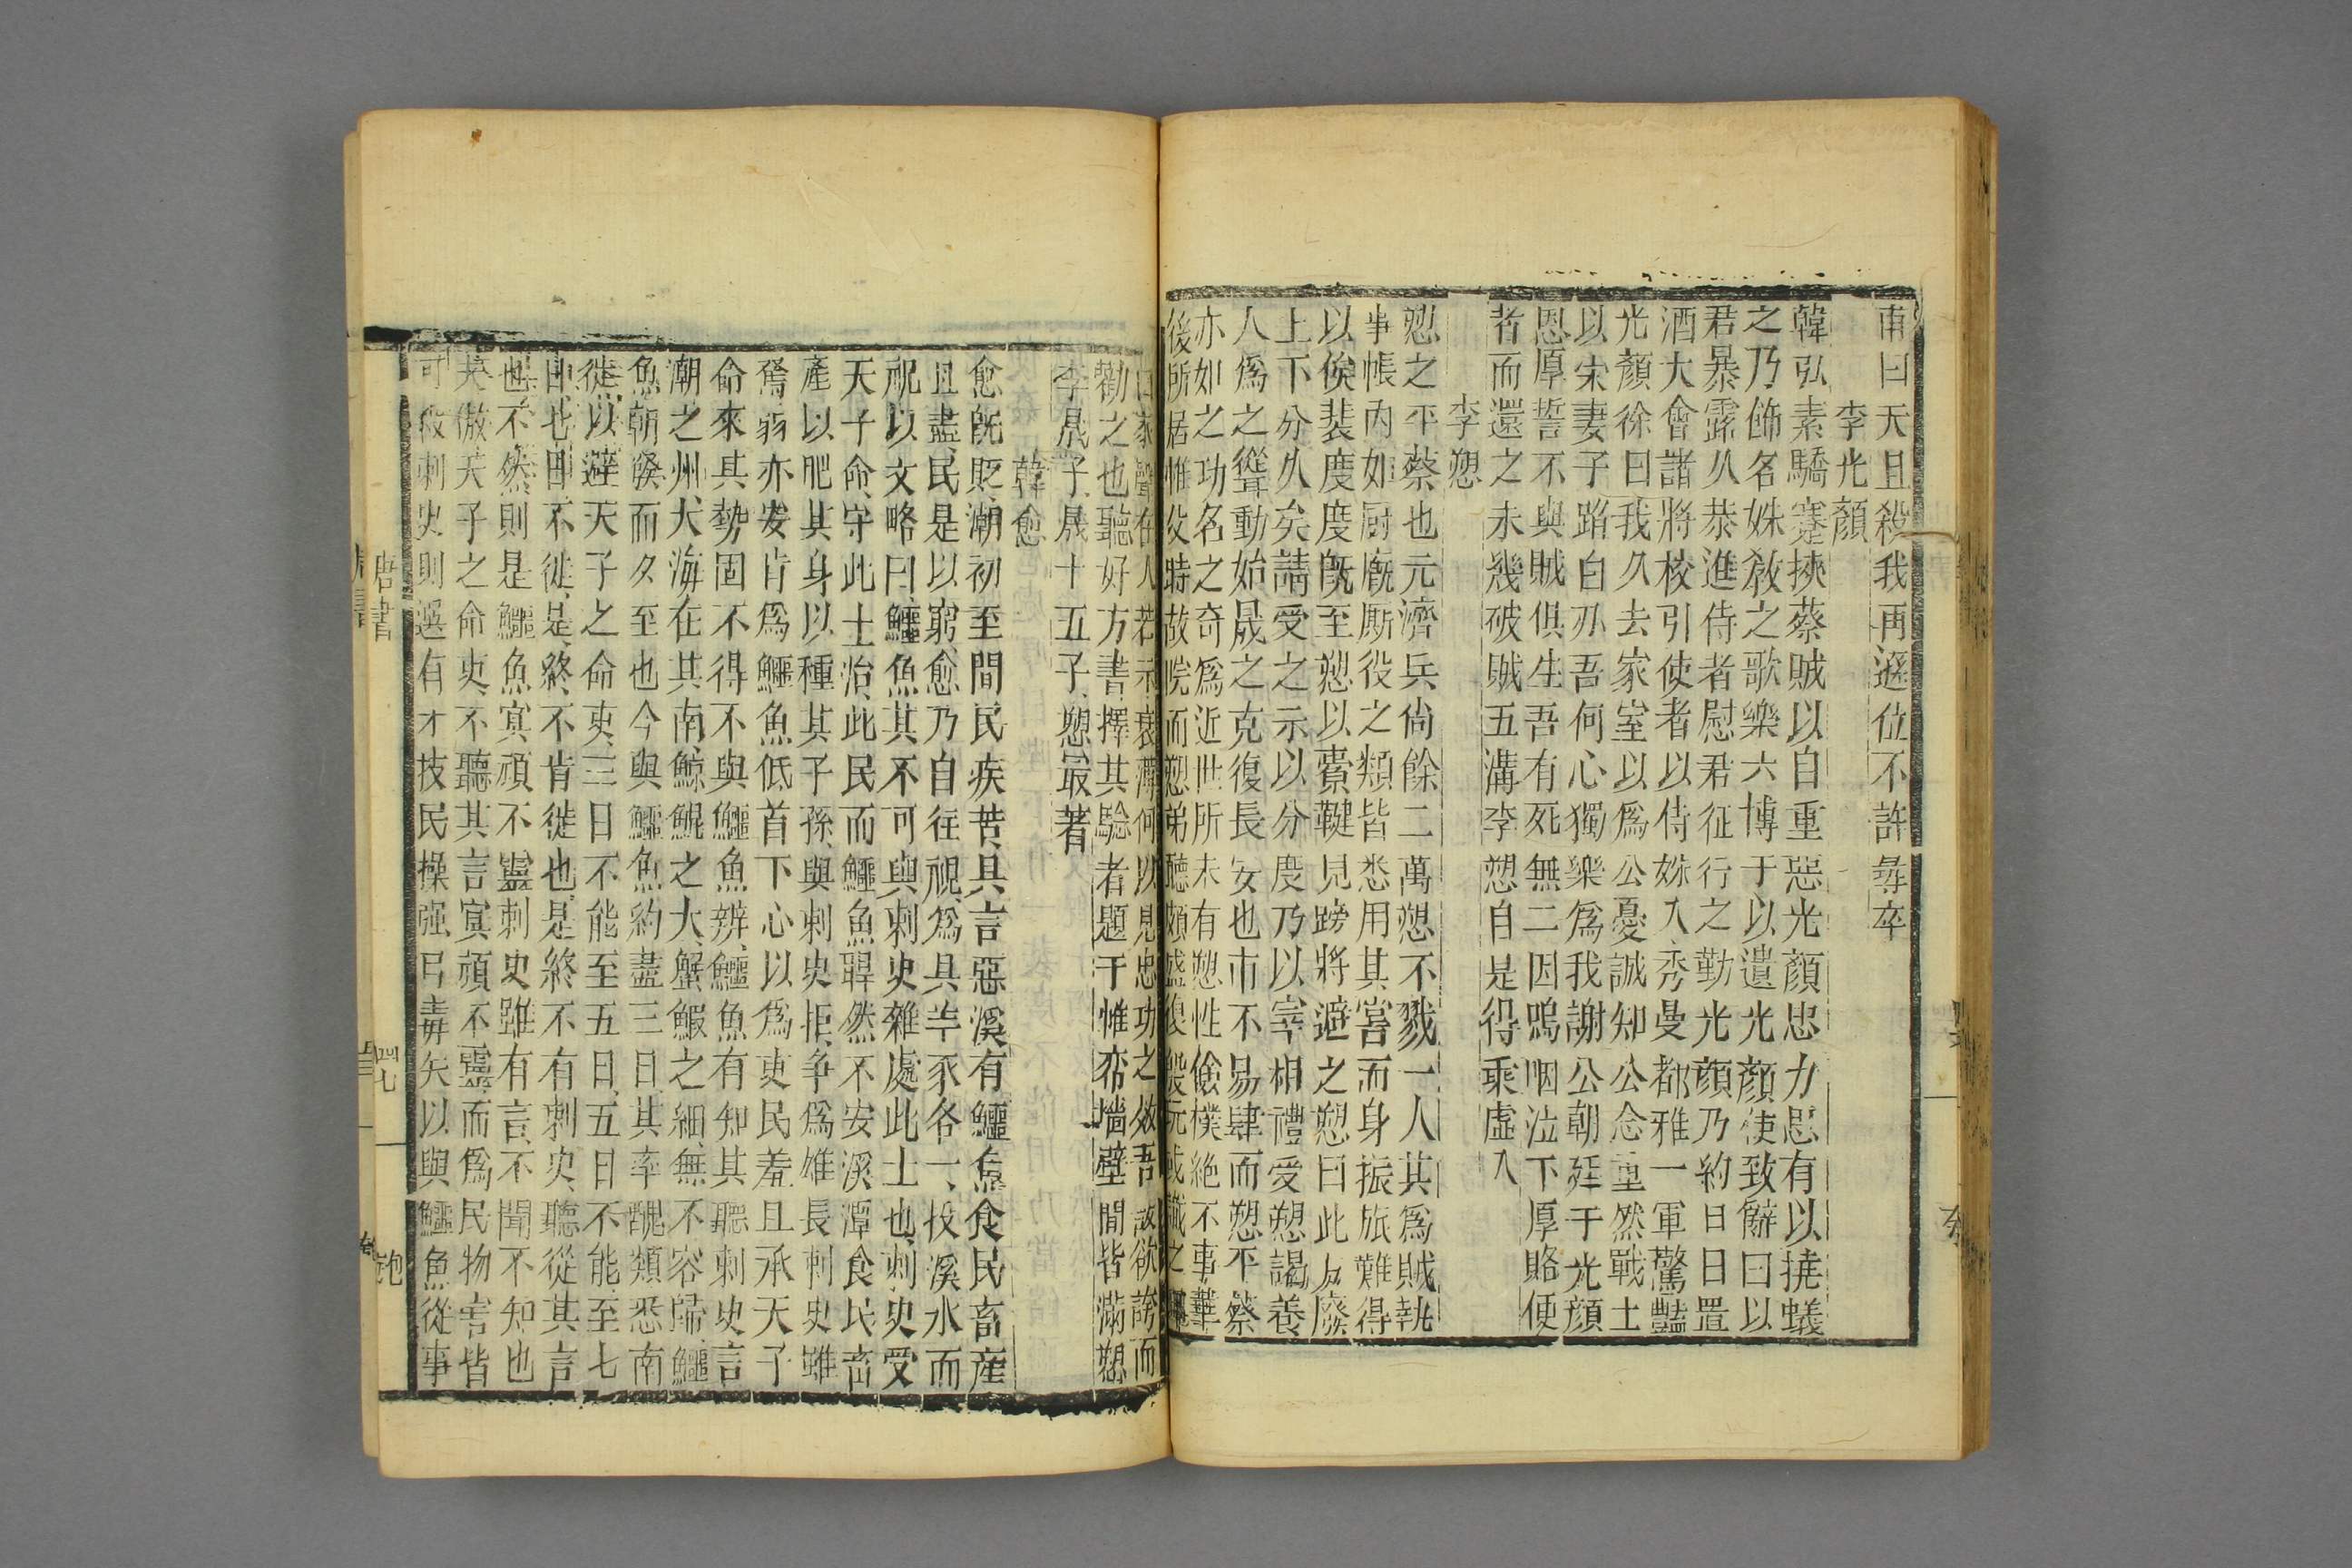 甫曰天且殺我再遜位不許彝卒
李光顏
韓弘素驕蹇挾蔡賊以自重惡光顏忠力思有以撓蟻
之乃飾名姝敎之歌樂六博于以遺光顏使致辭曰以
君暴露久恭進侍者慰君征行之勤光顏乃約日日置
酒大會諸將校引使者以侍姝入秀曼都雅一軍驚豔
光顏徐曰我久去家室以爲公憂誠知公念重然戰士
以宋妻子蹈白刃吾何心獨樂爲我謝公朝廷于光顏
恩厚誓不與賊俱生吾有死無二因嗚咽泣下厚賂便
者而還之未幾破賊五溝李愬自是得乘虛入
李愬
愬之平蔡也元濟兵尙餘二萬愬不戮一人其爲賊執
事帳內如厨廐厮役之類皆悉用其舊而身振旅難得
以俟裴度度旣至愬以櫜鞬見蹐將避之愬曰此方廢
上下分久矣請受之示以分度乃以宰相禮受愬謁養
人爲之聳動始晟之克復長安也市不易肆而愬平蔡
亦如之功名之奇爲近世所未有愬性儉樸絶不事華
後所居惟父時故院而愬弟聽頗盛復毀玩或譏之
曰家聲在人若示衰薄何以見忠功之效吾故欲誇而
勸之也聽好方書擇其驗者題于帷帟墻壁間皆滿愬
李晟子晟十五子愬最著
韓愈
愈旣貶潮初至間民疾苦具言惡溪有鱷魚食民畜産
且盡民是以窮愈乃自往視爲具羊豕各一投溪水而
祝以文略曰鱷魚其不可與刺史雜處此土也刺史受
天子命守此土治此民而鱷魚睅然不安溪潭食民畜
產以肥其身以種其子孫與刺史拒爭爲雄長刺史雖
駑弱亦安肯爲鱷魚低首下心以爲吏民羞且承天子
命來其勢固不得不與鱷魚辨鱷魚有知其聽刺史言
潮之州大海在其南鯨鯤之大蟹鰕之細無不容歸鱷
魚朝發而夕至也今與鱷魚約盡三日其率醜類悉南
徙以避天子之命吏三日不能至五日五日不能至七
日七日不徙是終不肯徙也是終不有刺史聽從其言
也不然則是鱷魚冥頑不靈刺史雖有言不聞不知也
夫傲天子之命吏不聽其言冥頑不靈而爲民物害皆
可殺刺史則選有才技民操强弓毒矢以與鱷魚從事
唐書
四七